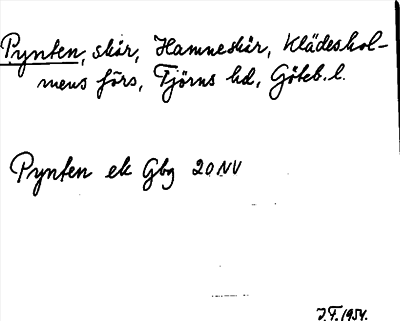 Pynten, skär, Hamneskär, Klädeshol-
mens förs, Tjörns hd, Göteb. l.
Pynten ek Gbg 20 NV
J.F. 1954.